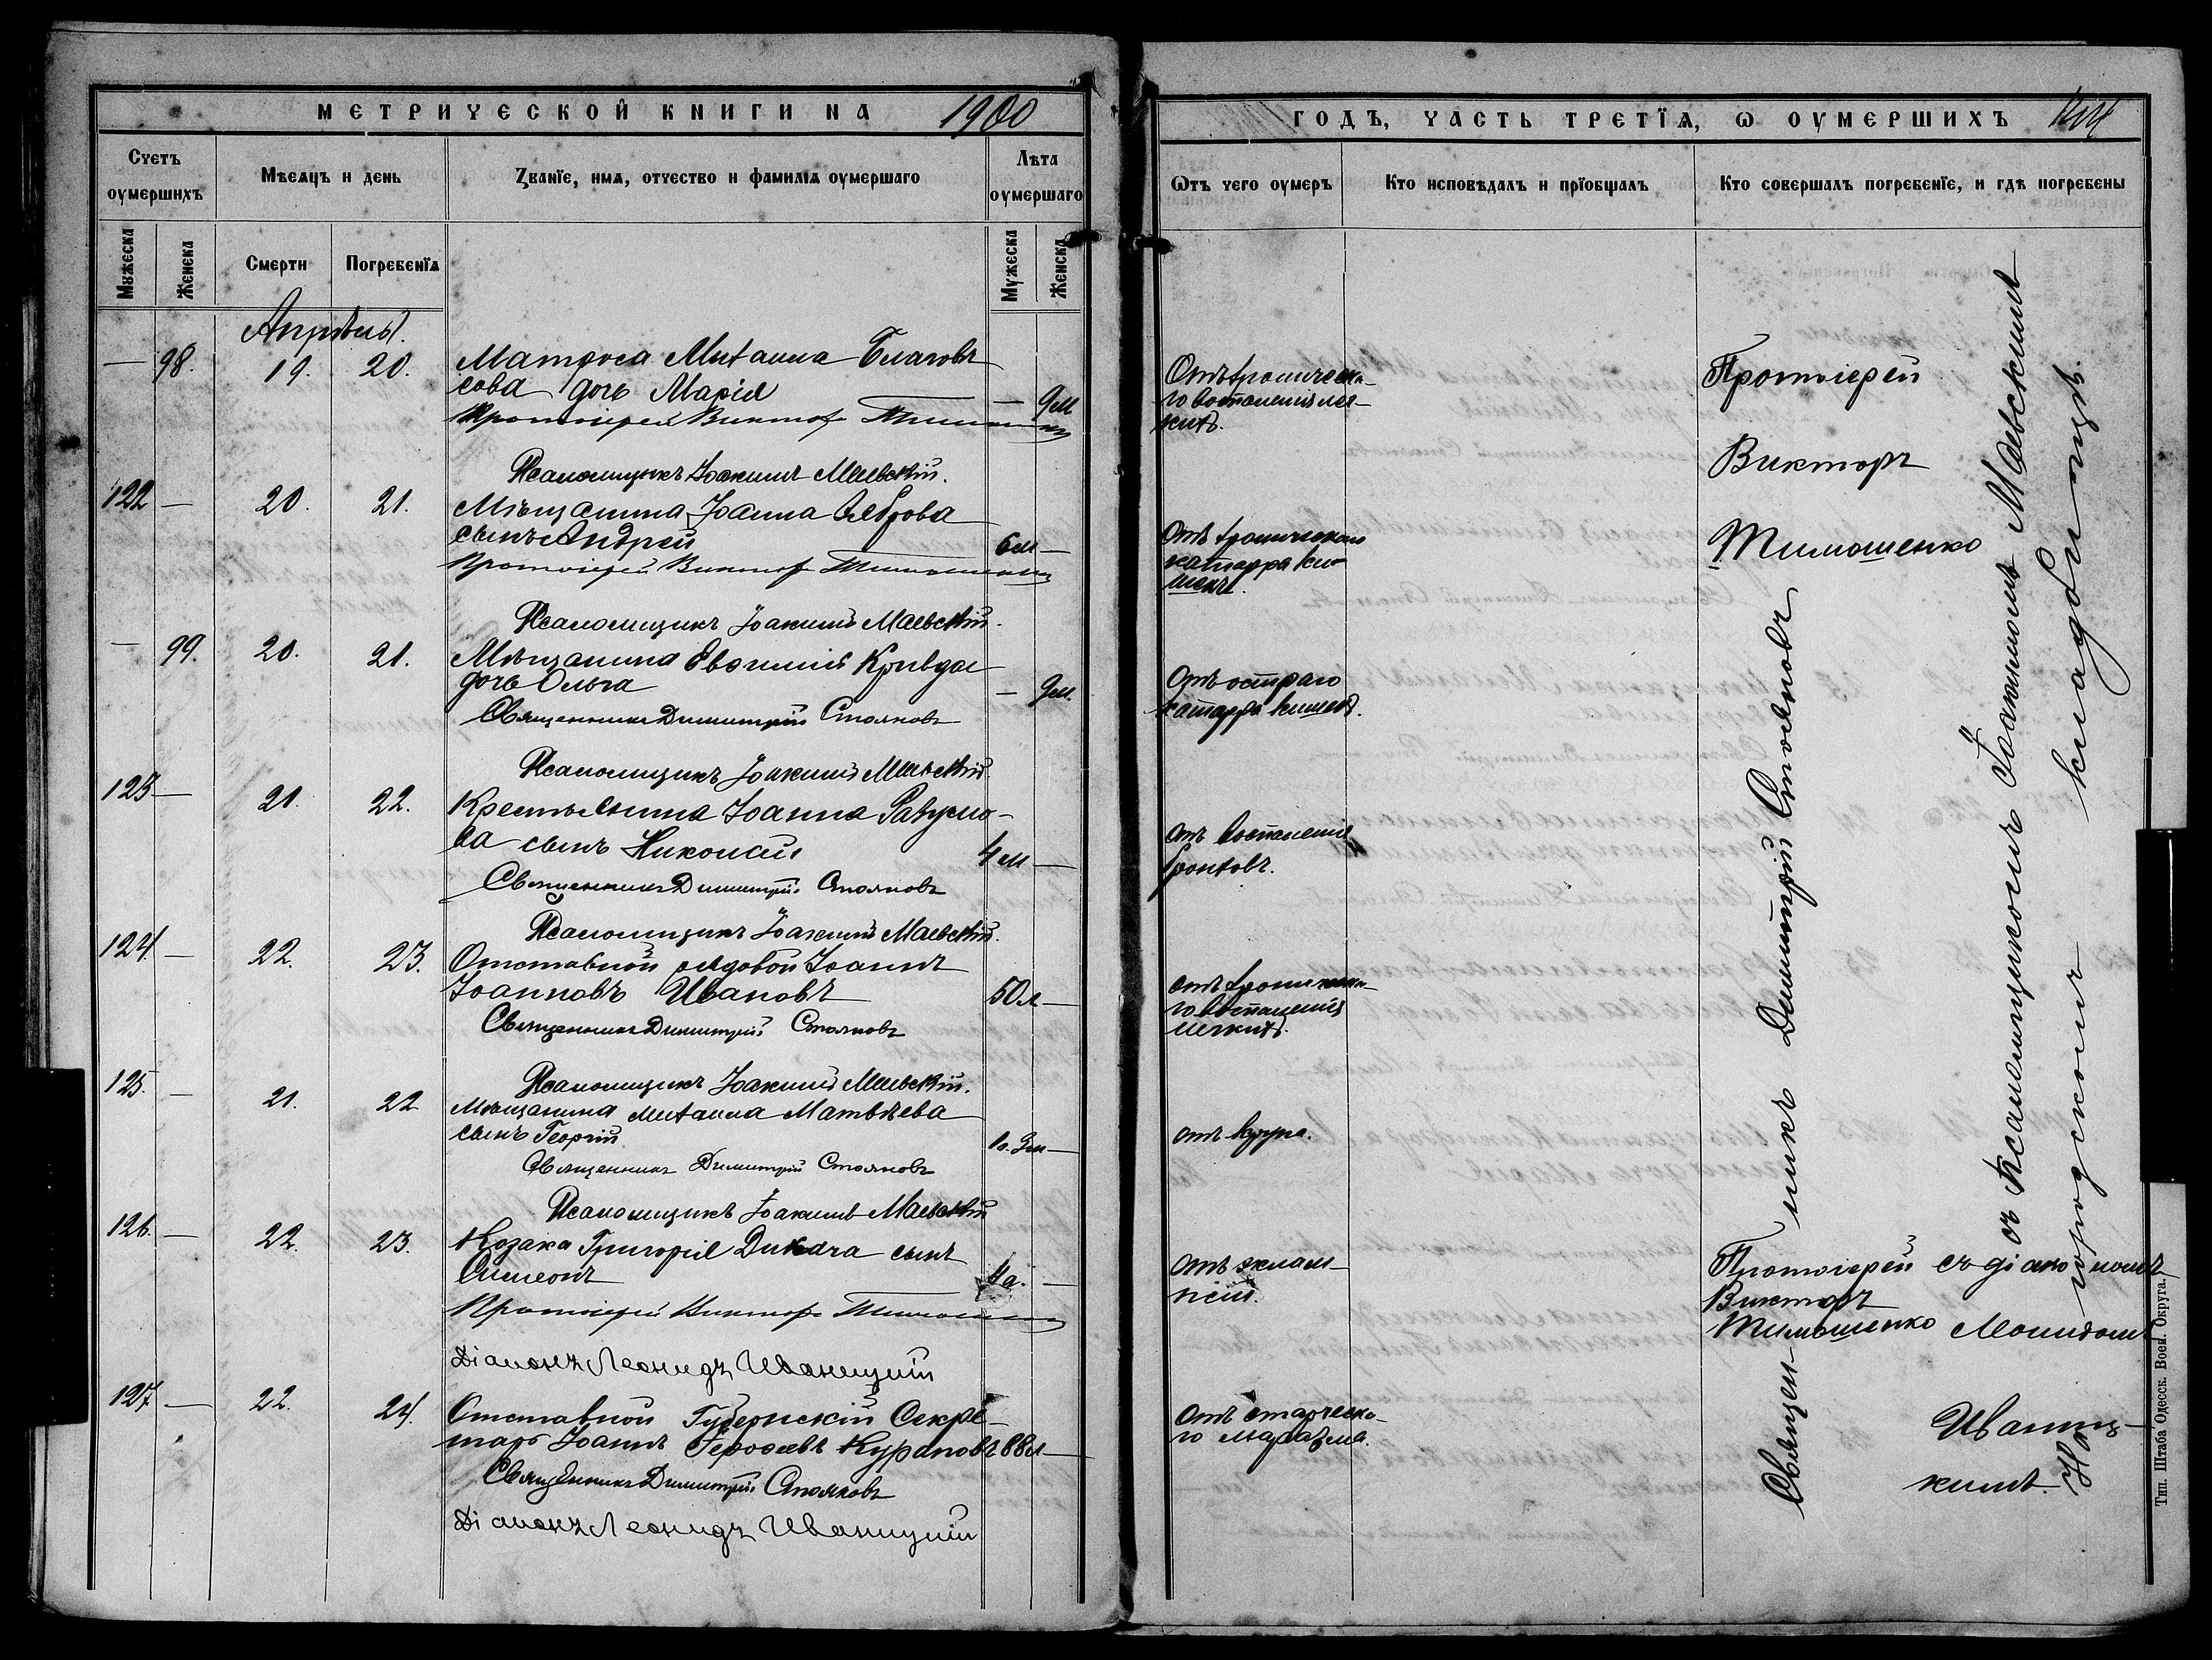 МЕТРИЧЕСКОЙ КНИГИ НА 1900
Счетъ оумершихъ
Мѣсяцъ и день
Званїе, имя, отчество и фамилїя оумершаго
Лѣта оумершаго
Мꙋжеска
Женска
Смерти
Погребенїя
Мужеска
Женска
Апрѣль.
— 98. 19. 20. Матроса Михаила Благовѣ
сова дочь Марія — 9м
Протоіерей Викторъ Тимошенко
Псаломщикъ Іоакимъ Маевскій.
122 — 20. 21. Мѣщанина Іоанна
сынъ Андрей 6м —
Протоіерей Викторъ Тимошенко
Псаломщикъ Іоакимъ Маевскій.
— 99. 20. 21. Мѣщанина Евѳимій Кривда
дочь Ольга — 9м.
Священникъ Димитрій Стояновъ
Псаломщикъ Іоакимъ Маевскій.
123 — 21. 22. Крестьянина Іоанна
ва сынъ Николай 4м —
Священникъ Димитрій Стояновъ
Псаломщикъ Іоакимъ Маевскій.
124 — 22. 23. Отставной рядовой Іоаннъ
Іоанновъ Ивановъ 50л —
Священникъ Димитрій Стояновъ
Псаломщикъ Іоакимъ Маевскій.
125. — 21. 22 Мѣщанина Михаила Матвѣева
сынъ Георгій —
Священникъ Димитрій Стояновъ
Псаломщикъ Іоакимъ Маевскій
126. — 22. 23. Козака Григорія сынъ
Симеонъ —
Протоіерей Викторъ Тимошенко
Діаконъ Леонидъ Иваницкій
127 — 22. 24. Отставной Губернскій Секре-
тарь Іоаннъ Курановъ 88л —
Священникъ Димитрій Стояновъ
Діаконъ Леонидъ Иваницкій
ГОДЪ, ЧАСТЬ ТРЕТЇѦ, Ѡ ОУМЕРШИХЪ
Ѿтъ чего оумеръ
Кто исповѣдалъ и прїобщалъ
Кто совершалъ погребенїе, и гдѣ погребены
Отъ хроническа-
го воспаленія лег-
кихъ.
Отъ хроническаго
катарра ки-
шекъ.
Отъ остраго
катарра кишекъ.
Отъ воспаленія
бронховъ.
Отъ хроническа-
го воспаленія
легкихъ.
Отъ крупа.
Отъ эклам-
псіи.
Отъ старческа-
го маразма.
Протоіерей
Викторъ
Тимошенко
Священникъ Димитрій Стояновъ
съ Псаломщикомъ Іоакимомъ Маевскимъ
На городскомъ кладбищѣ.
Протоіерей съ діакономъ
Викторъ
Тимошенко Леонидомъ
Иваниц-
кимъ.
Тип. Штаба Одесск. Воен. Округа.